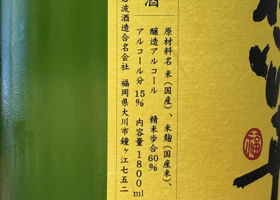 酒
原材料名 米(国産)、米麹(国産米)、
醸造アルコール 精米歩合60%
アルコール分15% 内容量1800ml
波酒造合名会社 福岡県大川市鐘ヶ江七五二
福